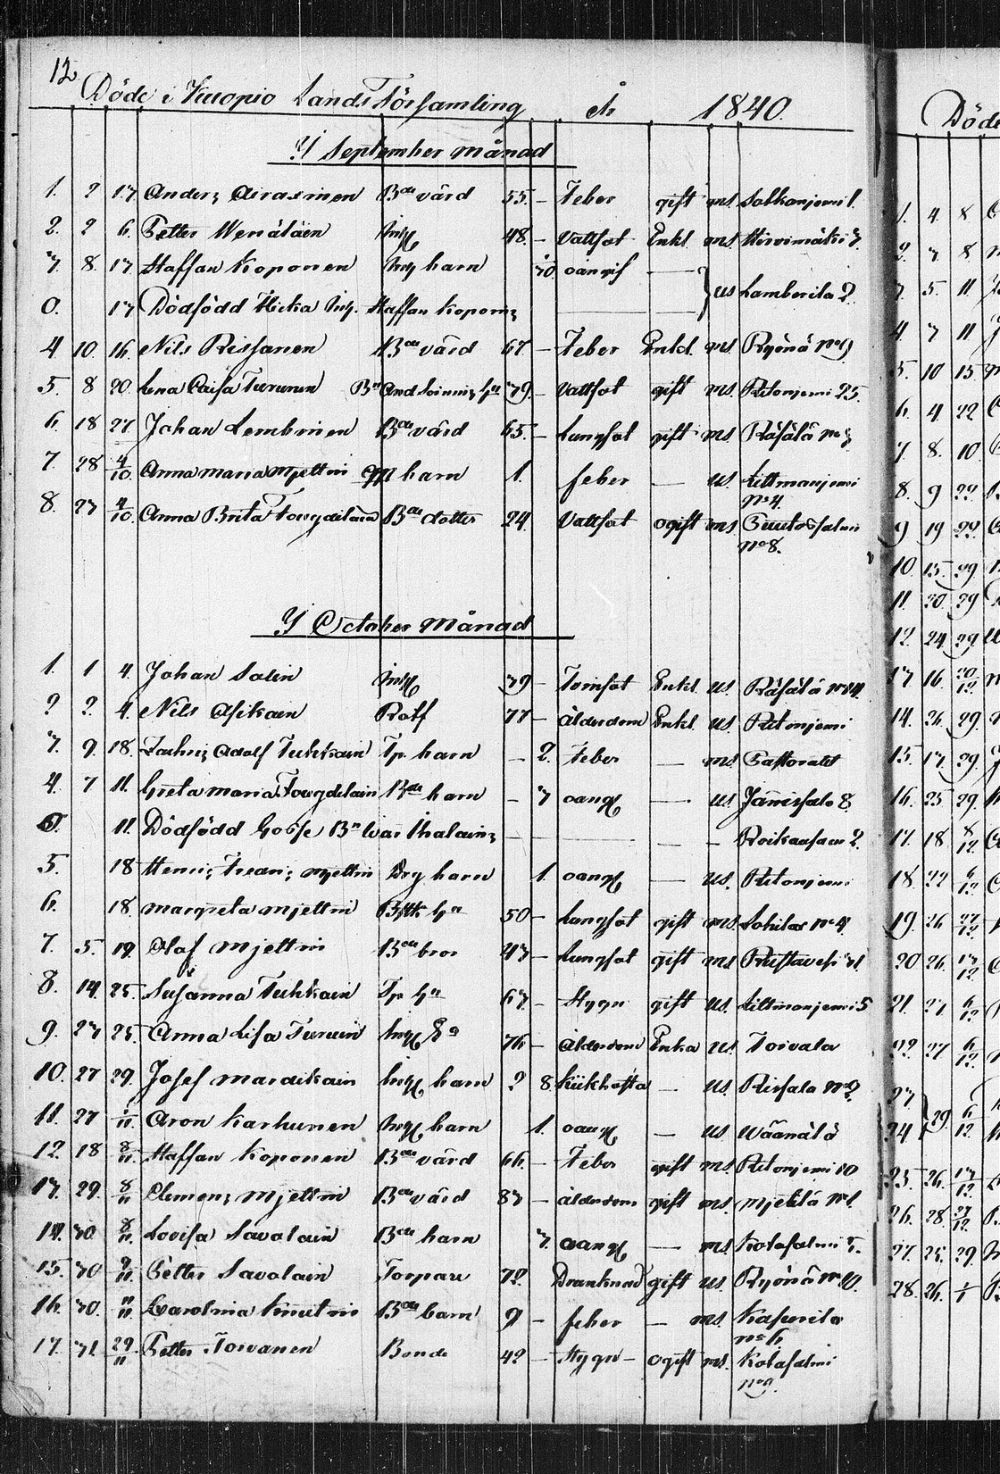 12
Döde i Kuopio Lands Församling År 1840.
I September Månad
1. 2 17 Anders Airasinen Bde värd 55. - Feber gift ms.
2. 2 6. Petter Wenäläin Inh 48. - Vattsot Enkl. ms Hirvimäki 7.
3. 8. 17 Staffan Koponen Inh barn 30 oangif us Lamberila 2.
0. 17 Dödfödd Flicka Inh. Staffan Kopon;
4 10. 16. Nils Rissanen Bde värd 67 - Feber Enkl. ms Ryönä No 9
5. 8 20. Lena Caisa Turunen 79. - Vattsot gift ms. Ritoniemi 25.
6. 18 27 Johan Lembinen Bde värd 65. - Lungsot gift ms Räsälä No 3
7. 28 4/10. Anna Maria Mjettin barn 1. feber — us Littmanjemi No 4.
8. 27 4/10. Anna Brita Tougdelain Bde dotter 24 Vattsot ogift ms. Puutosalmi No 8.
I October Månad
1. 1 4. Johan Salin Inh 39 - Tvinsot Enkl. us Räsälä No 14.
2 2. 4. Nils Asikain Rotf 77 - ålderdom Enkl us. Ritonjemi
3. 9. 18. Zachris Adolf Tuhkain Tp barn - 2. Feber — ms. Pastoratet
4. 7 11. Greta Maria Tougdelain Bde barn - 3 oang — us Jännisalo 8
0. 11. Dödfödd Gosse Bn Ivar Ihalain; - — - - Roikansaari 2.
5. 18 Henric Fredric Mjettin Drg barn 1. oang — us. Ritonjemi
6. 18. Margreta Mjettin Hu 50 - Lungsot gift ms. Lohilax No 4.
7. 5. 19. Olof Mjettin Bde bror 43 - Lungsot gift ms
8. 14. 25. Susanna Tuhkain Tp Hu 67 - Stygn gift us. Littmanjemi 5
9. 23 25. Anna Lisa Turuin Inh Ea 76 - ålderdom Enka us Toivala
10. 27 29. Josef Mardikain Inh barn 2 8 Kikhosta — us. Rissala No 2
11. 27 1/11. Aron Karhunen Inh barn 1. oang — us Wäänälä
12. 18 8/11. Staffan Koponen Bde värd 66 - Feber gift ms Ritonjemi 10
13. 29. 8/11 Clemens Mjettin Bde värd 83 - ålderdom gift ms. Mjettlä No 1.
14. 30 8/11. Lovisa Savolain Bde barn 3. oang — ms Kotasalmi 5.
15. 30 9/11. Petter Savolain Torpare 32. Dranknad gift us. Ryönä No 10.
16. 30. 11/11 Carolina Knutin Bde barn 9 - feber — ms. Kasurila No 6
17. 31 29/11 Petter Toivanen Bonde 42 - Stygn - ogift ms. Kotasalmi No 9.
Döde
1. 4 8
2. 7 8
3. 5. 11
4 7 11
5. 10 15
6. 4 22
7 8. 10
8. 9 22.
9 19 22.
10. 15. 29
11. 20. 29
12. 24 29
13 16. 30/12
14. 26. 29.
15. 17. 29.
16. 25 29.
17. 18 8/12
18. 22 6/12
19. 26 27/12
20 26. 13/12
21. 27 6/12
22. 27 6/12
23.
24 29 6/12
25. 26. 13/12
26. 28. 27/12
27. 25. 29.
28. 26. 1/1